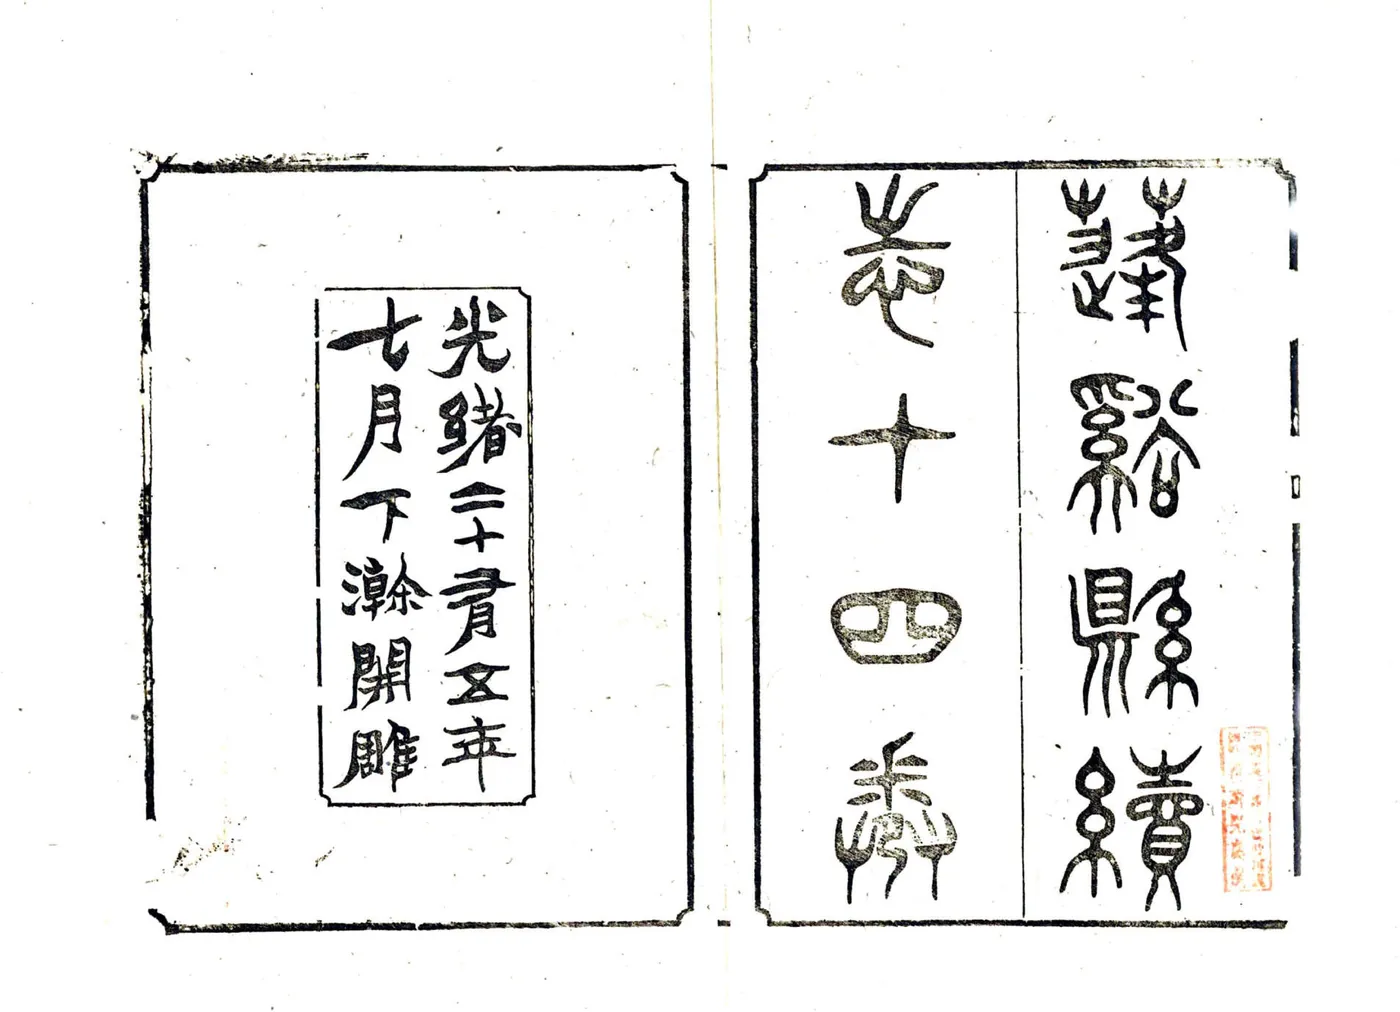 蓬谿縣續
志十四卷
光緒二十有五年
七月下澣開雕